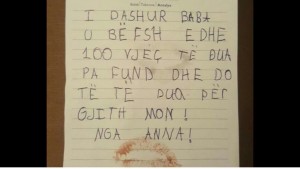 I DASHUR BABA
U BËFSH EDHE
100 VJEÇ TË DUA
PA FUND DHE DO
TË TË DUA PËR
GJITH MON!
NGA ANNA!